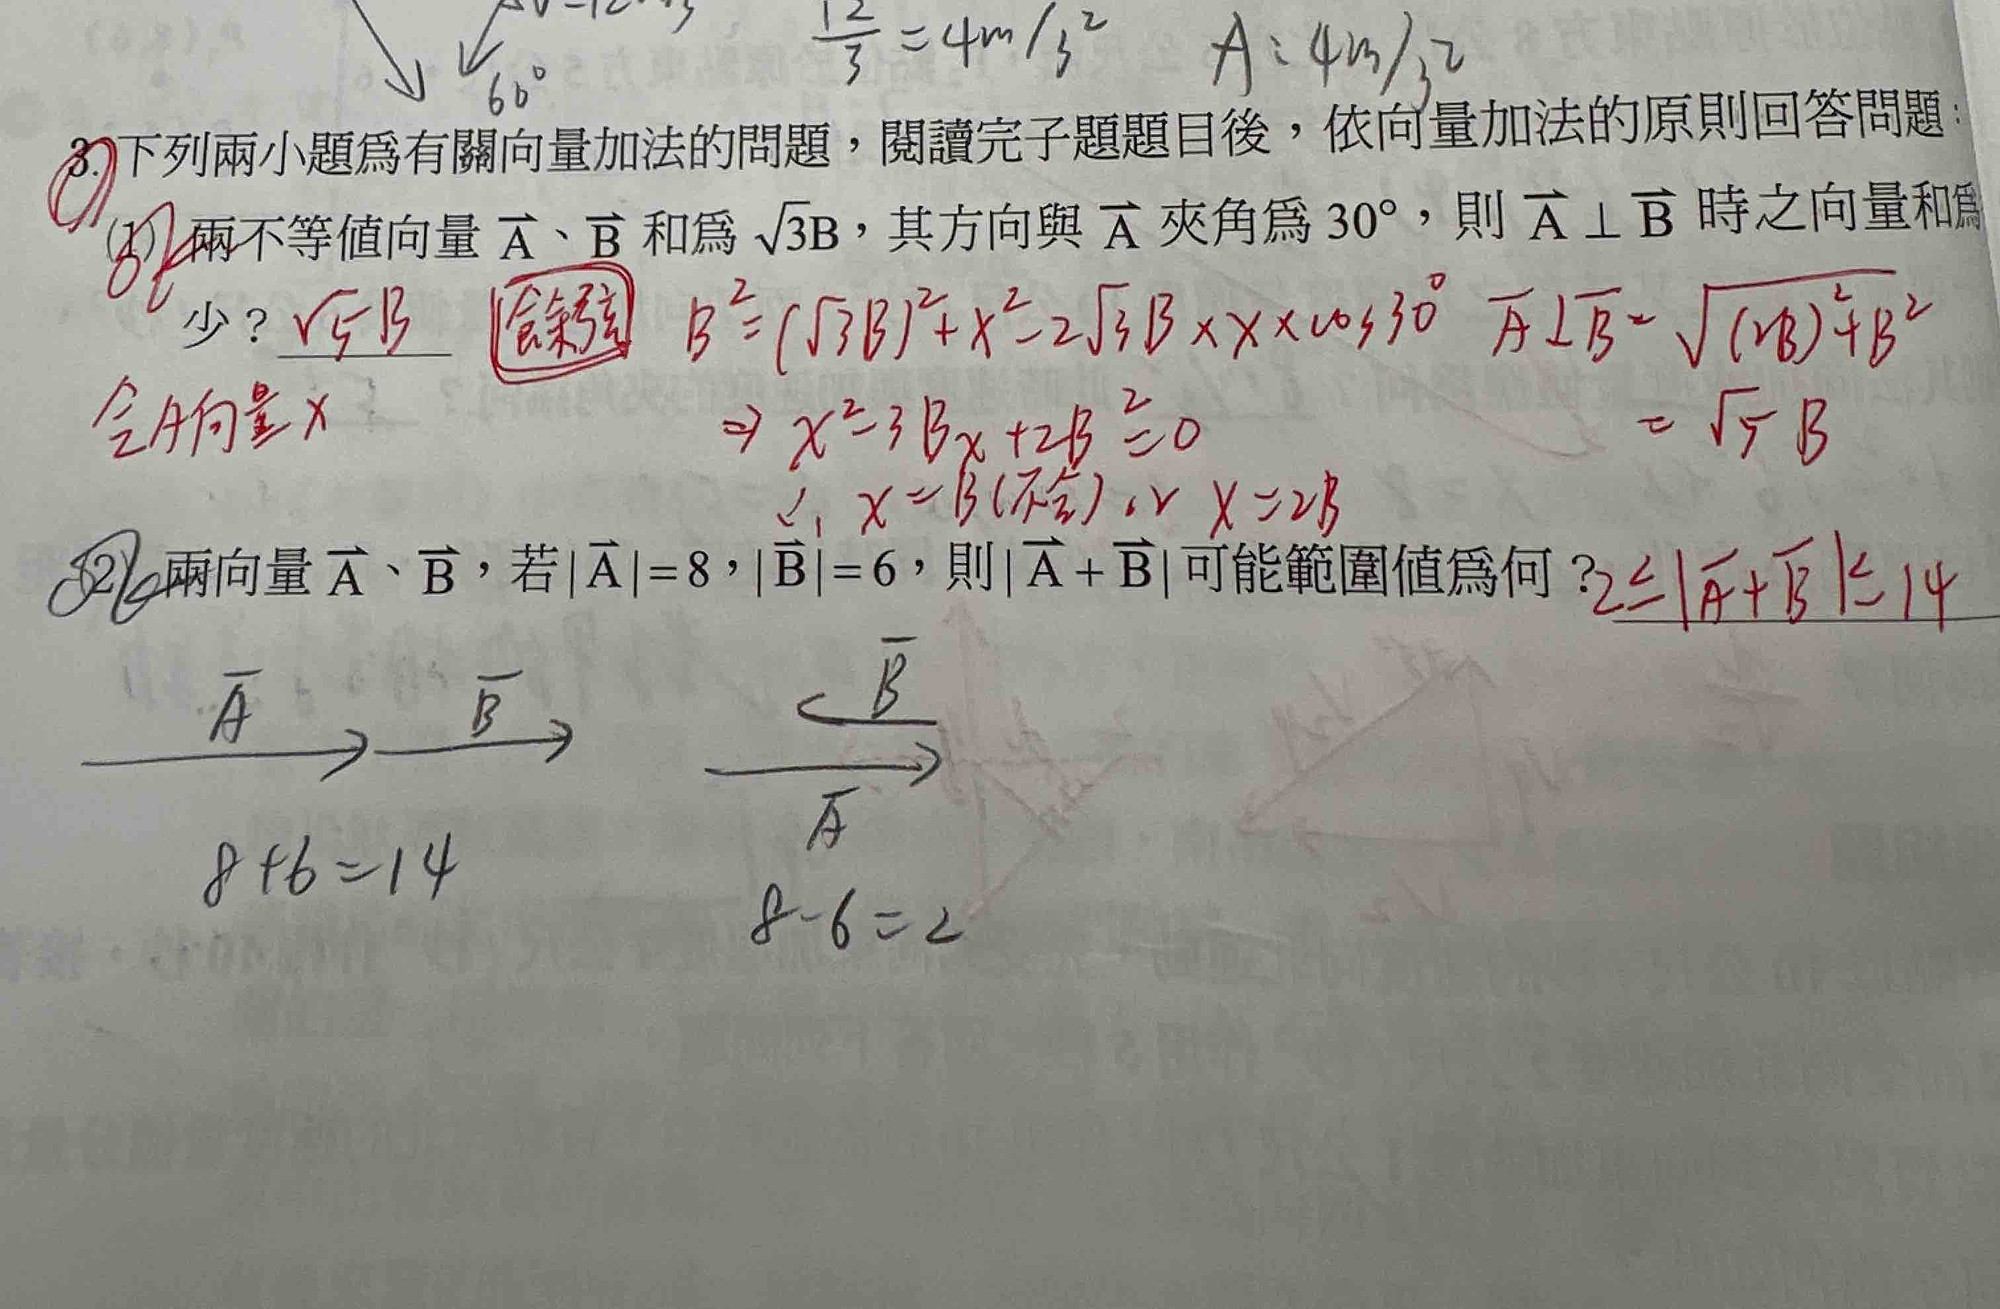 60°
12/3 = 4m/s² A: 4m/s²
3. 下列兩小題為有關向量加法的問題，閱讀完子題題目後，依向量加法的原則回答問題：
(1) 兩不等值向量 A⃗、B⃗ 和為 √3B，其方向與 A⃗ 夾角為 30°，則 A⃗ ⊥ B⃗ 時之向量和為
少？ √5B 餘弦 B² = (√3B)² + x² - 2√3B × x × cos30° A̅⊥B̅ = √((2B)² + B²)
令A向量x ⇒ x² - 3Bx + 2B² = 0 = √5 B
∴ x = B (不合) or x = 2B
(2) 兩向量 A⃗、B⃗，若 |A⃗| = 8，|B⃗| = 6，則 |A⃗ + B⃗| 可能範圍值為何？ 2 ≤ |A̅ + B̅| ≤ 14
A̅ B̅ B̅
A̅
8+6=14
8-6=2